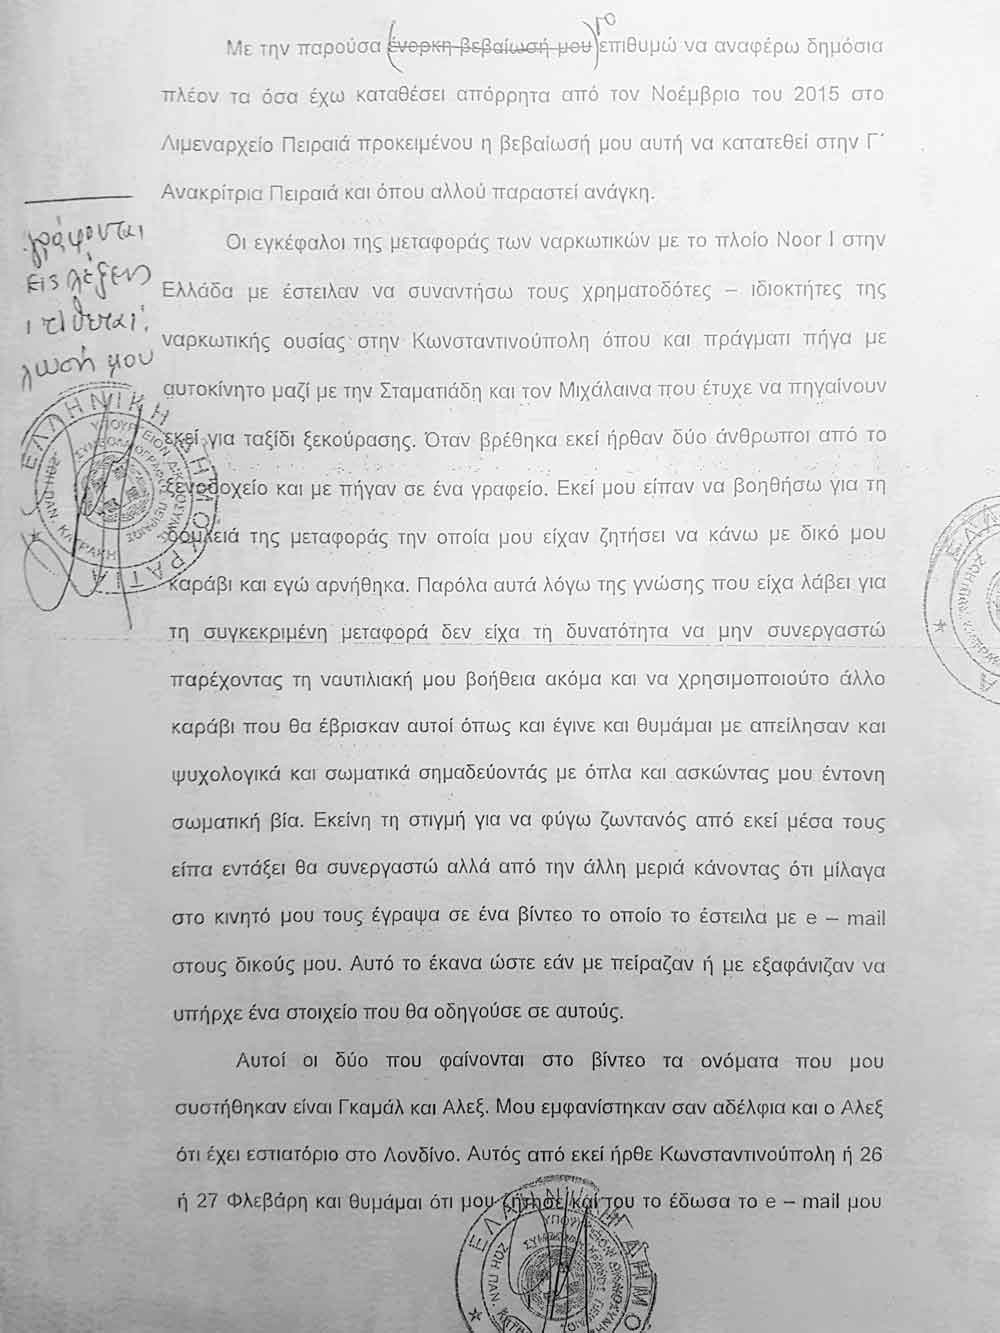 Με την παρούσα (ένορκη βεβαίωσή μου) επιθυμώ να αναφέρω δημόσια
πλέον τα όσα έχω καταθέσει απόρρητα από τον Νοέμβριο του 2015 στο
Λιμεναρχείο Πειραιά προκειμένου η βεβαίωσή μου αυτή να κατατεθεί στην Γ΄
Ανακρίτρια Πειραιά και όπου αλλού παραστεί ανάγκη.
γράφονται
εις λέξεις
τίθεται
λωσή μου
Οι εγκέφαλοι της μεταφοράς των ναρκωτικών με το πλοίο Noor I στην
Ελλάδα με έστειλαν να συναντήσω τους χρηματοδότες – ιδιοκτήτες της
ναρκωτικής ουσίας στην Κωνσταντινούπολη όπου και πράγματι πήγα με
αυτοκίνητο μαζί με την Σταματιάδη και τον Μιχάλαινα που έτυχε να πηγαίνουν
εκεί για ταξίδι ξεκούρασης. Όταν βρέθηκα εκεί ήρθαν δύο άνθρωποι από το
ξενοδοχείο και με πήγαν σε ένα γραφείο. Εκεί μου είπαν να βοηθήσω για τη
δουλειά της μεταφοράς την οποία μου είχαν ζητήσει να κάνω με δικό μου
καράβι και εγώ αρνήθηκα. Παρόλα αυτά λόγω της γνώσης που είχα λάβει για
τη συγκεκριμένη μεταφορά δεν είχα τη δυνατότητα να μην συνεργαστώ
παρέχοντας τη ναυτιλιακή μου βοήθεια ακόμα και να χρησιμοποιούτο άλλο
καράβι που θα έβρισκαν αυτοί όπως και έγινε και θυμάμαι με απείλησαν και
ψυχολογικά και σωματικά σημαδεύοντάς με όπλα και ασκώντας μου έντονη
σωματική βία. Εκείνη τη στιγμή για να φύγω ζωντανός από εκεί μέσα τους
είπα εντάξει θα συνεργαστώ αλλά από την άλλη μεριά κάνοντας ότι μίλαγα
στο κινητό μου τους έγραψα σε ένα βίντεο το οποίο το έστειλα με e – mail
στους δικούς μου. Αυτό το έκανα ώστε εάν με πείραζαν ή με εξαφάνιζαν να
υπήρχε ένα στοιχείο που θα οδηγούσε σε αυτούς.
Αυτοί οι δύο που φαίνονται στο βίντεο τα ονόματα που μου
συστήθηκαν είναι Γκαμάλ και Αλεξ. Μου εμφανίστηκαν σαν αδέλφια και ο Αλεξ
ότι έχει εστιατόριο στο Λονδίνο. Αυτός από εκεί ήρθε Κωνσταντινούπολη ή 26
ή 27 Φλεβάρη και θυμάμαι ότι μου ζήτησε και του το έδωσα το e – mail μου
ΕΛΛΗΝΙΚΗ ΔΗΜΟΚΡΑΤΙΑ